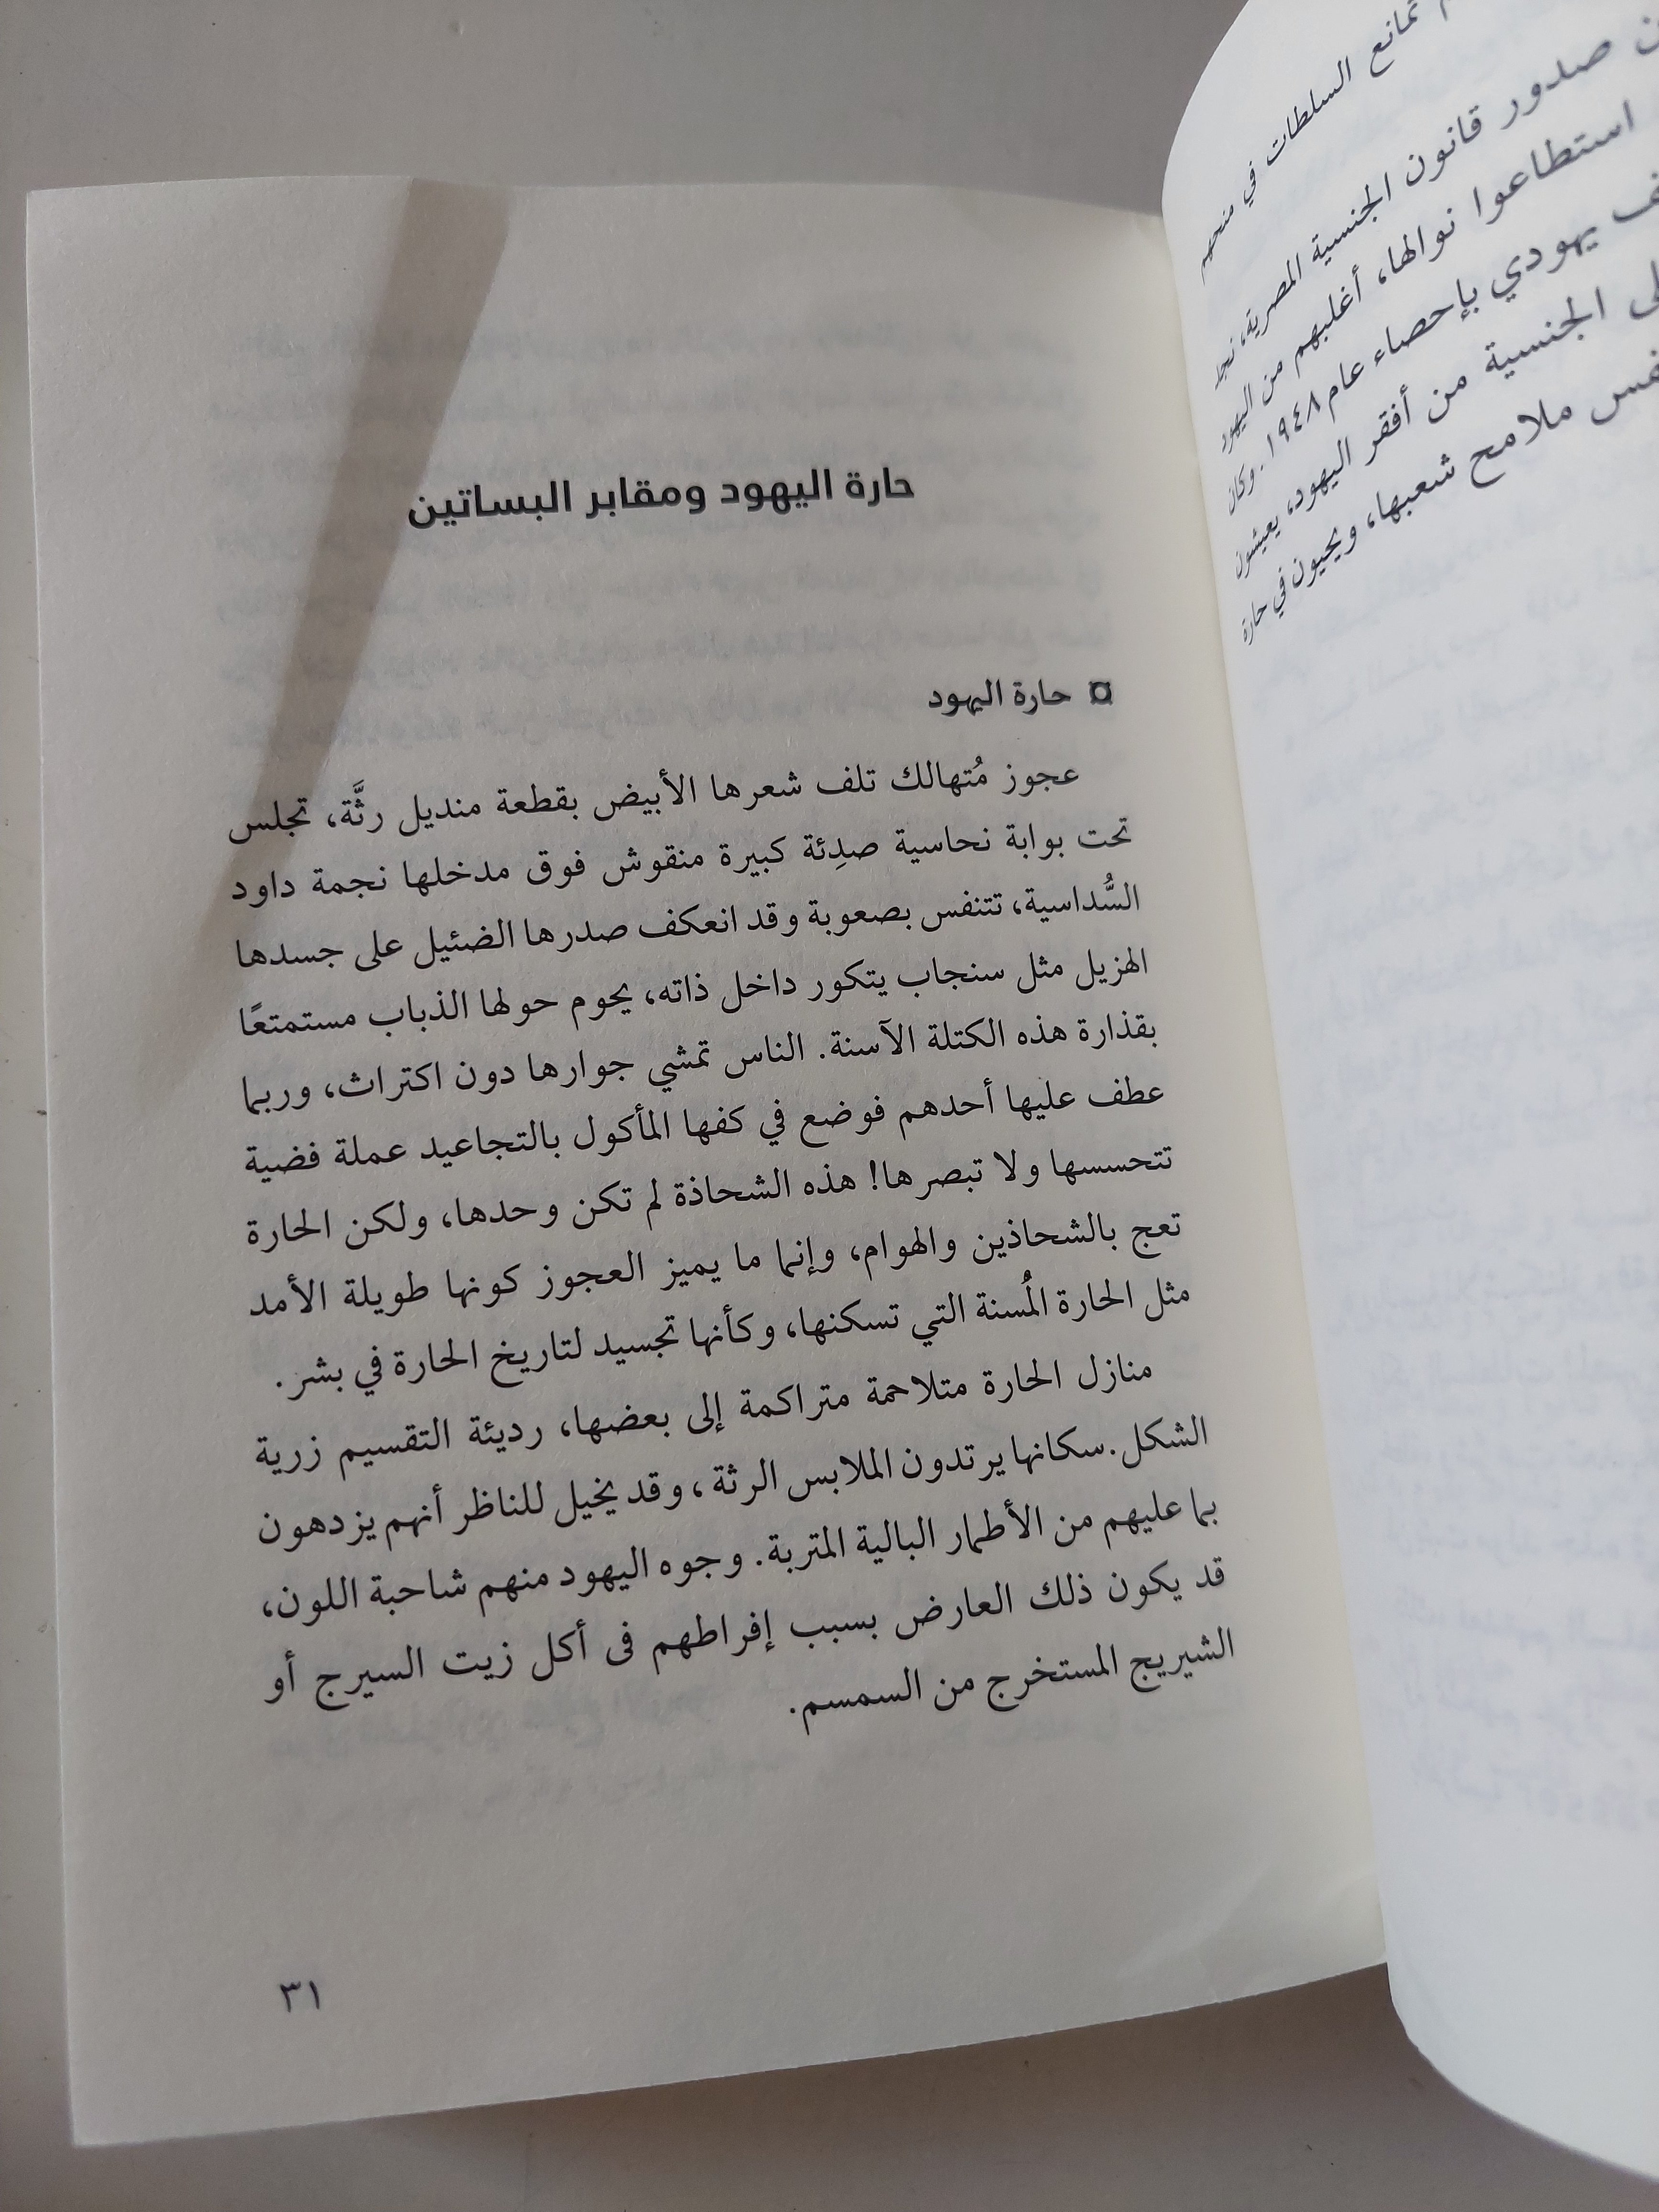 تمانع السلطات في منحهم
صدور قانون الجنسية المصرية، نجد
استطاعوا نوالها، أغلبهم من اليهود
يهودي بإحصاء عام ١٩٤٨. وكان
الجنسية من أفقر اليهود، يعيشون
ملامح شعبها، ويحيون في حارة
حارة اليهود ومقابر البساتين
¤ حارة اليهود
عجوز مُتهالك تلف شعرها الأبيض بقطعة منديل رثَّة، تجلس
تحت بوابة نحاسية صدِئة كبيرة منقوش فوق مدخلها نجمة داود
السُّداسية، تتنفس بصعوبة وقد انعكف صدرها الضئيل على جسدها
الهزيل مثل سنجاب يتكور داخل ذاته، يحوم حولها الذباب مستمتعًا
بقذارة هذه الكتلة الآسنة. الناس تمشي جوارها دون اكتراث، وربما
عطف عليها أحدهم فوضع في كفها المأكول بالتجاعيد عملة فضية
تتحسسها ولا تبصرها! هذه الشحاذة لم تكن وحدها، ولكن الحارة
تعج بالشحاذين والهوام، وإنما ما يميز العجوز كونها طويلة الأمد
مثل الحارة المُسنة التي تسكنها، وكأنها تجسيد لتاريخ الحارة في بشر.
منازل الحارة متلاحمة متراكمة إلى بعضها، رديئة التقسيم زرية
الشكل. سكانها يرتدون الملابس الرثة، وقد يخيل للناظر أنهم يزدهون
بما عليهم من الأطمار البالية المتربة. وجوه اليهود منهم شاحبة اللون،
قد يكون ذلك العارض بسبب إفراطهم فى أكل زيت السيرج أو
الشيريج المستخرج من السمسم.
٣١